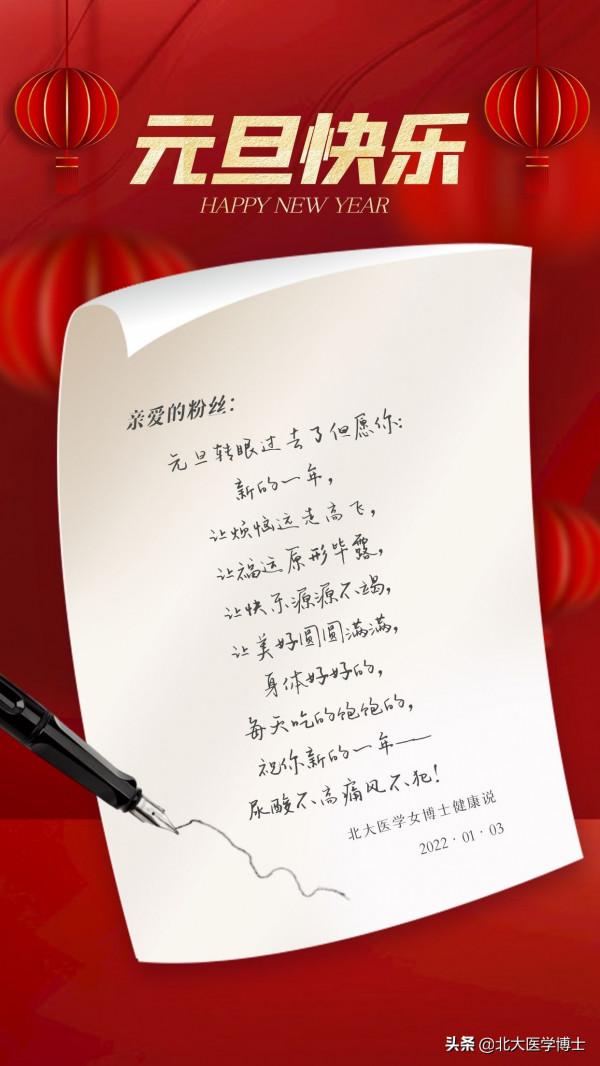 元旦快乐
HAPPY NEW YEAR
亲爱的粉丝：
元旦转眼过去了但愿你：
新的一年，
让烦恼远走高飞，
让福运原形毕露，
让快乐源源不竭，
让美好圆圆满满，
身体好好的，
每天吃的饱饱的，
祝你新的一年——
尿酸不高痛风不犯！
北大医学女博士健康说
2022·01·03
头条 @北大医学博士